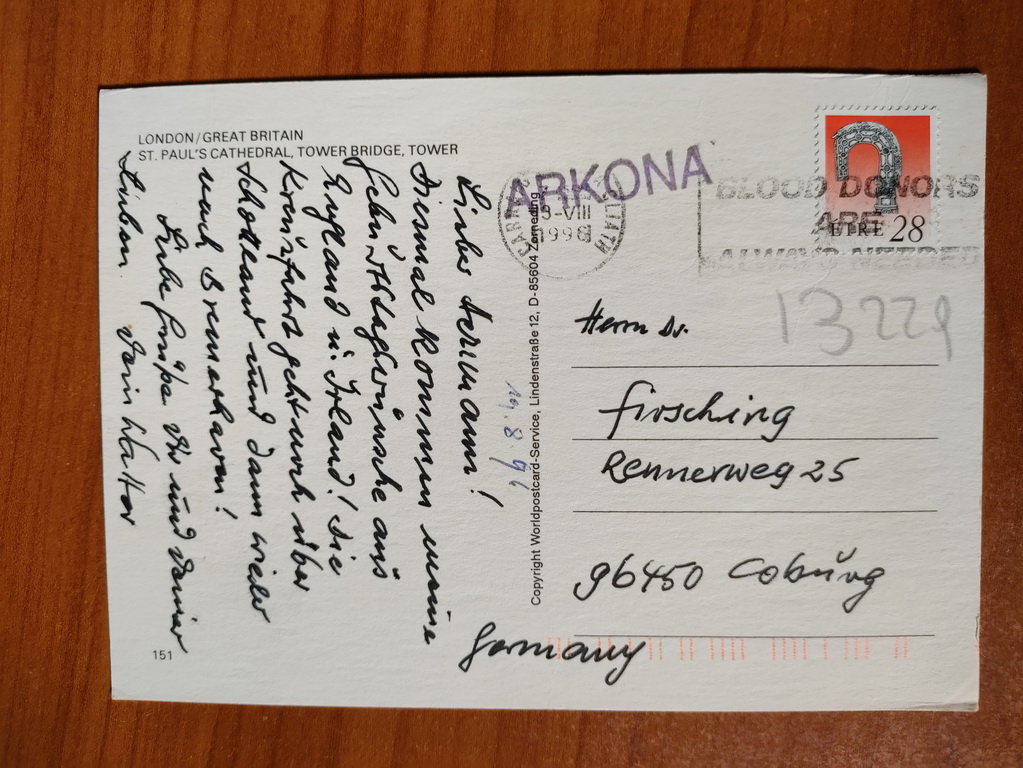 LONDON/GREAT BRITAIN
ST. PAUL'S CATHEDRAL, TOWER BRIDGE, TOWER
Lieber Hermann!
Diesmal kommen meine
Geburtstagswünsche aus
England u. Irland! Die
Kreuzfahrt geht noch über
Schottland und dann wieder
nach Bremerhaven!
Liebe Grüße Dir und Deinen
Lieben. Dein Walter
151
Copyright Worldpostcard-Service, Lindenstraße 12, D-85604 Zorneding
ARKONA
VIII
BLOOD DONORS
ARE
ALWAYS NEEDED
ÉIRE 28
13229
Herrn Dr.
Firsching
Rennerweg 25
96450 Coburg
Germany